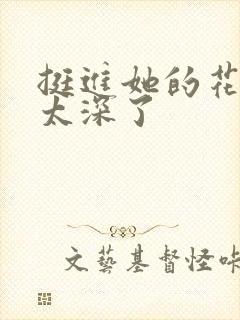 挺进她的花
太深了
文藝基督怪咔